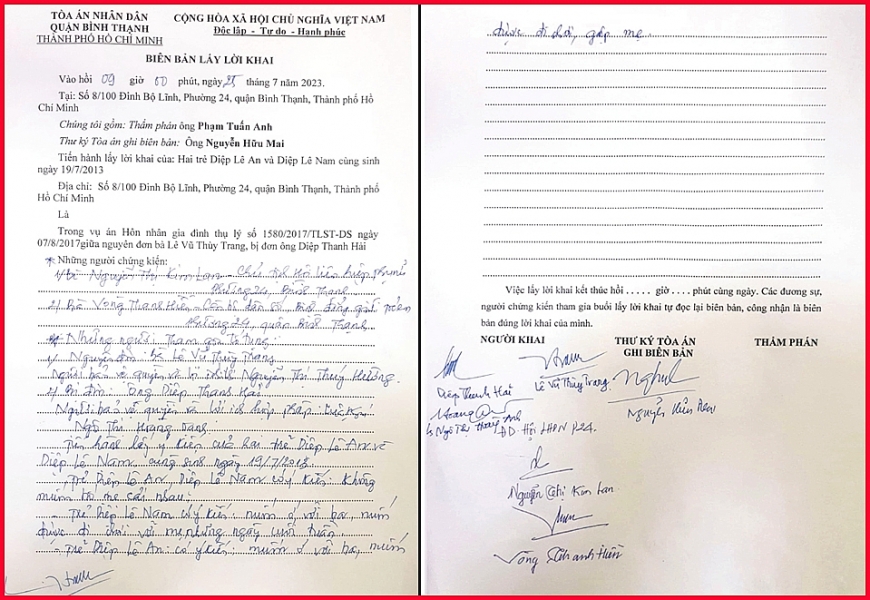 TÒA ÁN NHÂN DÂN
QUẬN BÌNH THẠNH
THÀNH PHỐ HỒ CHÍ MINH
CỘNG HÒA XÃ HỘI CHỦ NGHĨA VIỆT NAM
Độc lập - Tự do - Hạnh phúc
BIÊN BẢN LẤY LỜI KHAI
Vào hồi 09 giờ 00 phút, ngày 25 tháng 7 năm 2023.
Tại: Số 8/100 Đinh Bộ Lĩnh, Phường 24, quận Bình Thạnh, Thành phố Hồ
Chí Minh
Chúng tôi gồm: Thẩm phán ông Phạm Tuấn Anh
Thư ký Tòa án ghi biên bản: Ông Nguyễn Hữu Mai
Tiến hành lấy lời khai của: Hai trẻ Diệp Lê An và Diệp Lê Nam cùng sinh
ngày 19/7/2013
Địa chỉ: Số 8/100 Đinh Bộ Lĩnh, Phường 24, quận Bình Thạnh, Thành phố
Hồ Chí Minh
Là
Trong vụ án Hôn nhân gia đình thụ lý số 1580/2017/TLST-DS ngày
07/8/2017giữa nguyên đơn bà Lê Vũ Thùy Trang, bị đơn ông Diệp Thanh Hải
* Những người chứng kiến:
1/ Bà Nguyễn Thị Kim Lan - Chủ tịch Hội liên hiệp phụ nữ
Phường 24, Bình Thạnh
2/ Bà Vòng Thanh Hiền, Cán bộ dân số Bình đẳng giới
Phường 24, quận Bình Thạnh
* Những người tham gia tố tụng:
1/ Nguyên đơn: bà Lê Vũ Thùy Trang
Người bảo vệ quyền và lợi Nguyễn Thị Thúy Hường.
2/ Bị đơn: Ông Diệp Thanh Hải
Người bảo vệ quyền và lợi ích hợp pháp
Ngô Thị Hoàng
Tiến hành lấy ý kiến của hai trẻ Diệp Lê An và
Diệp Lê Nam cùng sinh ngày 19/7/2013.
- Trẻ Diệp Lê An, Diệp Lê Nam có ý kiến: Không
muốn bố mẹ cãi nhau.
- Trẻ Diệp Lê Nam có ý kiến: muốn ở với ba, muốn
được đi chơi với mẹ những ngày cuối tuần.
- Trẻ Diệp Lê An: có ý kiến: muốn ở với ba, muốn
được đi chơi, gặp mẹ
Việc lấy lời khai kết thúc hồi ..... giờ ....phút cùng ngày. Các đương sự,
người chứng kiến tham gia buổi lấy lời khai tự đọc lại biên bản, công nhận là biên
bản đúng lời khai của mình.
NGƯỜI KHAI
THƯ KÝ TÒA ÁN
GHI BIÊN BẢN
THẨM PHÁN
Diệp Thanh Hải
Lê Vũ Thùy Trang
Ngô Thị Hoàng Anh
ĐD. Hội LHPN P24.
Nguyễn Thị Kim Lan
Vòng Thanh Hiền